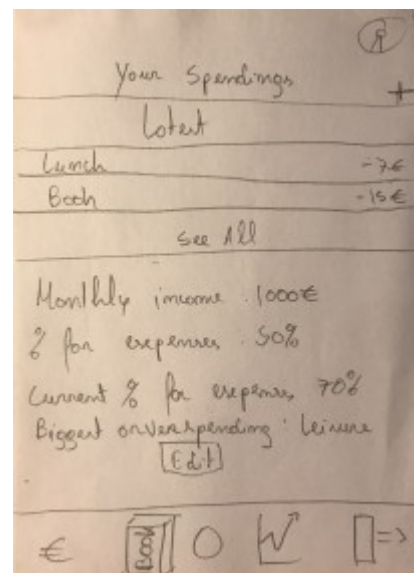 Your Spendings
+
Latest
Lunch -7€
Book -15€
See All
Monthly income : 1000€
% for expenses : 50%
Current % for expenses, 70%
Biggest onverspending : Leisure
Edit
€ BOOK